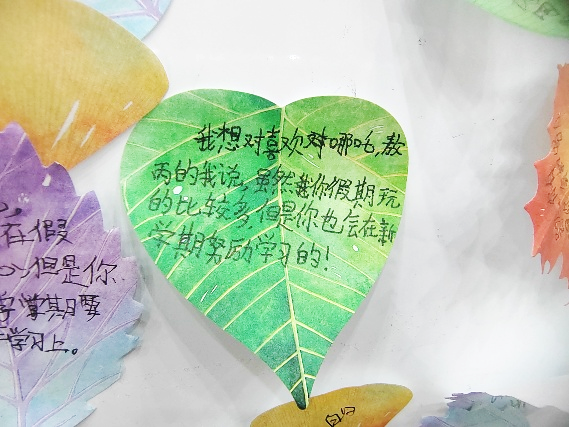 我想对喜欢对哪吒,敖
丙的我说,虽然我你假期玩
的比较多,但是你也会在新
学期努励学习的!
在假
但是你
学期要
学习上。